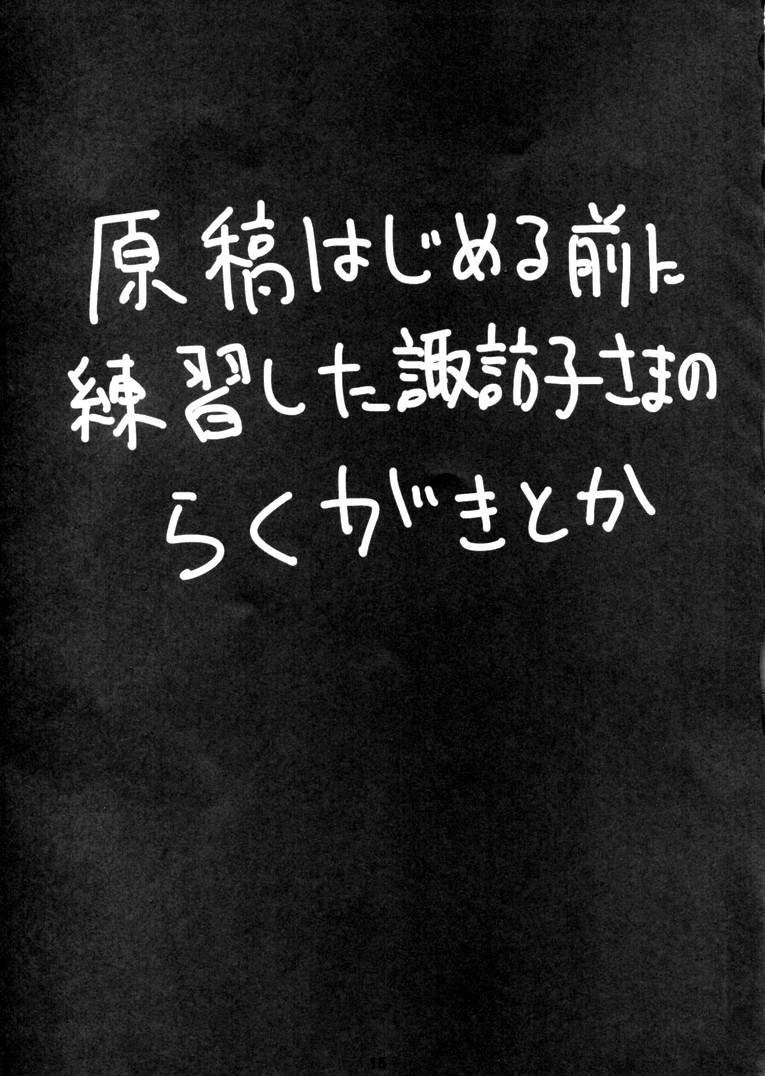 原稿はじめる前に
練習した諏訪子さまの
らくがきとか
16